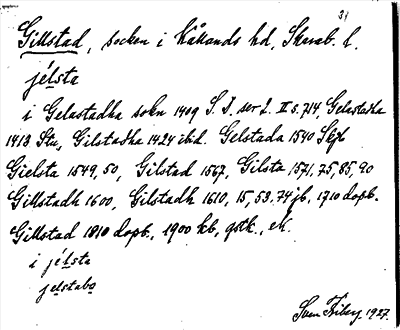 31
Gillstad, socken i Kållands hd, Skarab. l.
jélsta
i Gelastadha sokn 1409 S. D. ser 2. II s. 714, Gelastadha
1413 Stu, Gilstadha 1424 ibid. Gelstada 1540 Skgl
Gielsta 1549, 50, Gilstad 1567, Gilsta 1571, 75, 85, 90
Gillstadh 1600, Gilstadh 1610, 15, 53, 74 jb, 1710 dopb.
Gillstad 1810 dopb., 1900 kb, gstk., ek.
i jélsta
jelstabo
1927.